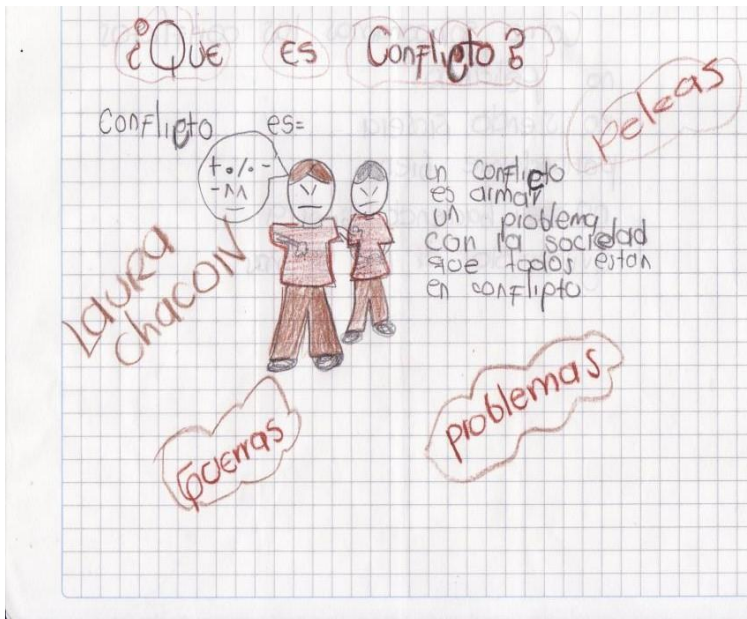 ¿Que es Conflipto?
Conflipto es=
peleas
+ o/. -
- ^^
un conflipto
es armar
un problema
con la sociedad
que todos estan
en conflipto
Laura
Chacon
guerras
problemas